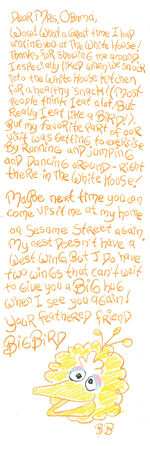 Dear Mrs. Obama,
Wow! What a great time I had
visiting you at The White House!
Thanks for showing me around.
I especially liked when we snuck
into the White House kitchen
for a healthy snack! (Most
people think I eat a lot. But
Really I eat like a BIRD!).
But my favorite part of our
visit was getting to exercise
By Running and Jumping
and Dancing around - Right
there in the White House!
Maybe next time you can
come visit me at my home
on Sesame Street again.
My nest doesn't have a
West Wing, But I do have
two wings that can't wait
to give you a Big hug
when I see you again!
Your feathered friend
Big Bird
BB